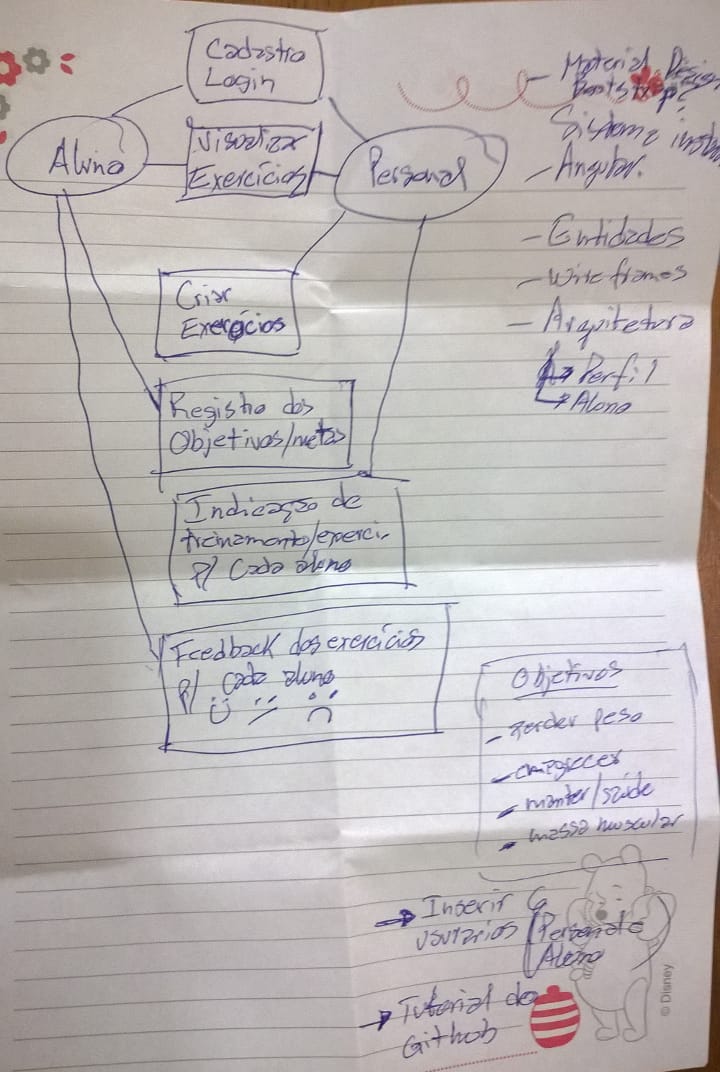 Cadastro
Login
Aluno
Visualizar
Exercícios
Personal
Criar
Exercícios
Registro dos
Objetivos/metas
Indicação de
treinamento/exercí.
p/ Cada aluno
Feedback dos exercícios
p/ Cada aluno
- Material Design
Bootstrap
Sistema
- Angular.
- Entidades
- Wireframes
- Arquitetura
Perfil
Aluno
Objetivos
- perder peso
- emagrecer
- manter/saúde
- massa muscular
→ Inserir 
usuários
Personal e
Aluno
→ Tutorial do
Github
© Disney